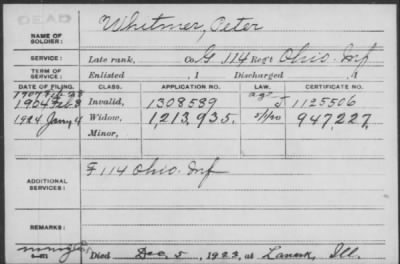 DEAD
NAME OF SOLDIER: Whitmer, Peter
SERVICE: Late rank, Co. G 114 Reg't Ohio Inf
TERM OF SERVICE: Enlisted , 1 Discharged , 1
DATE OF FILING. CLASS. APPLICATION NO. LAW. CERTIFICATE NO.
1904 Feb 8 Invalid, 1308589 J 1125506
1924 Jany 4 Widow, 1,213,935. 947,227.
Minor,
ADDITIONAL SERVICES: F 114 Ohio Inf
REMARKS:
Died Dec. 5, 1923, at Lanark, Ill.